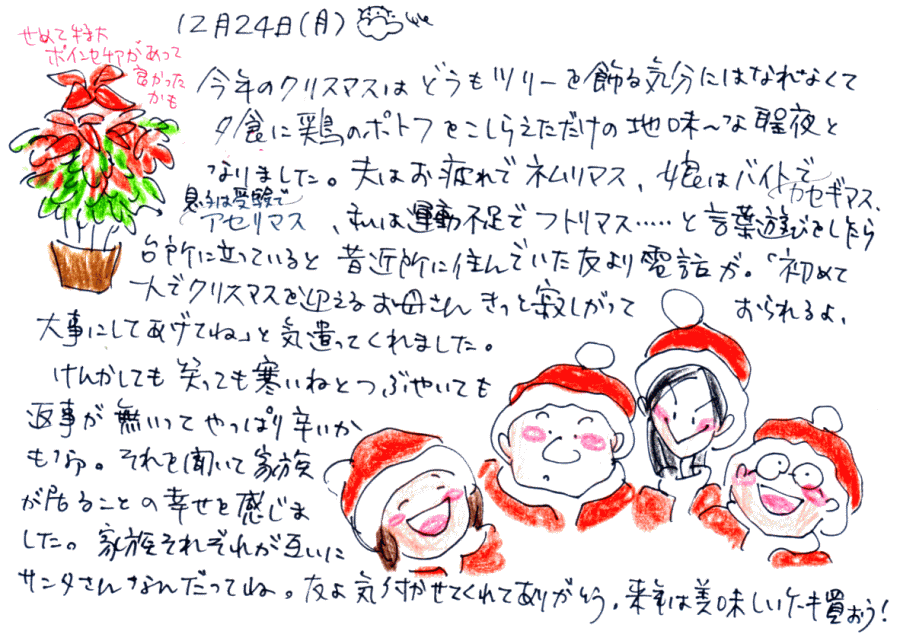 12月24日(月)
せめて特大
ポインセチアがあって
良かった
かも
今年のクリスマスは どうもツリーを飾る気分にはなれなくて
夕食に鶏のポトフをこしらえただけの地味〜な聖夜と
なりました。夫はお疲れでネムリマス、娘はバイトで
カセギマス、
息子は受験で
アセリマス、私は運動不足でフトリマス……と言葉遊びをしたら
台所に立っていると昔近所に住んでいた友より電話が。「初めて
一人でクリスマスを迎えるお母さんきっと寂しがって おられるよ、
大事にしてあげてね」と気遣ってくれました。
けんかしても笑っても寒いねとつぶやいても
返事が無いってやっぱり辛いか
もなぁ。それを聞いて家族
が居ることの幸せを感じま
した。家族それぞれが互いに
サンタさんなんだってね。友よ気付かせてくれてありがとう。来年は美味しいケーキ買おう!